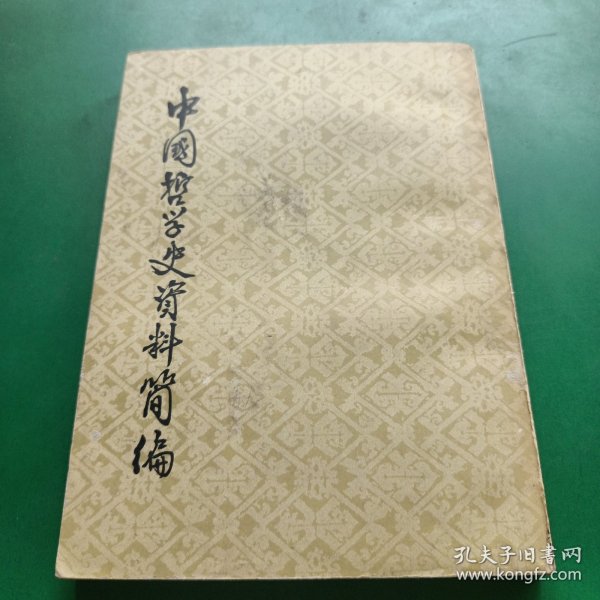 中國哲学史資料简编
孔夫子旧書网
www.kongfz.com